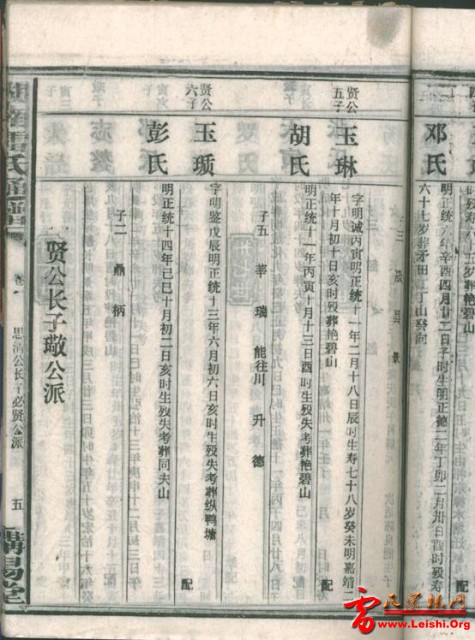 邓氏
明正统六年辛酉四月廿二日子时生明正德二年丁卯二月卅日酉时殁寿
六十七岁葬矛田丁山癸向
贤公
五子
玉琳
字明诚丙寅明正统十一年二月十八日辰时生寿七十八岁癸未明嘉靖二
年十月初十日亥时殁葬艳碧山
配
胡氏
明正统十一年丙寅十月十三日酉时生殁失考葬艳碧山
子五 莘 瑞 能往川 升 德
贤公
六子
玉琐
字明鉴戊辰明正统十三年六月初六日亥时生殁失考葬纵鸭塘
配
彭氏
明正统十四年己巳十月初二日亥时生殁失考葬同夫山
子二 鼎 柄
贤公长子璥公派
氏通谱
卷
思清公长子必贤公派
五
讲易堂
雷氏宗亲网
www.Leishi.Org